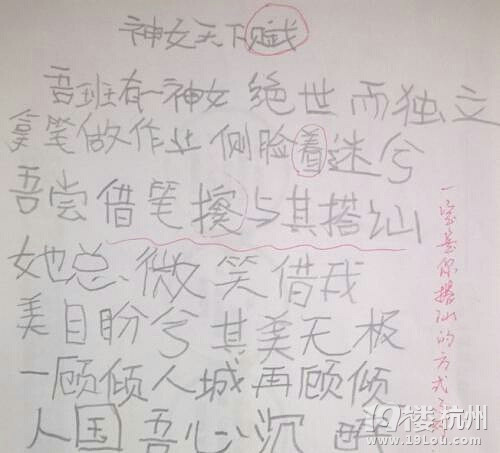 神女天下赋
吾班有一神女 绝世而独立
拿笔做作业 侧脸着迷兮
吾尝借笔擦与其搭讪
她总微笑借我
美目盼兮其美无极
一顾倾人城再顾倾
人国吾心沉醉
一定是你搭讪的方式
19楼 杭州
www.19lou.com